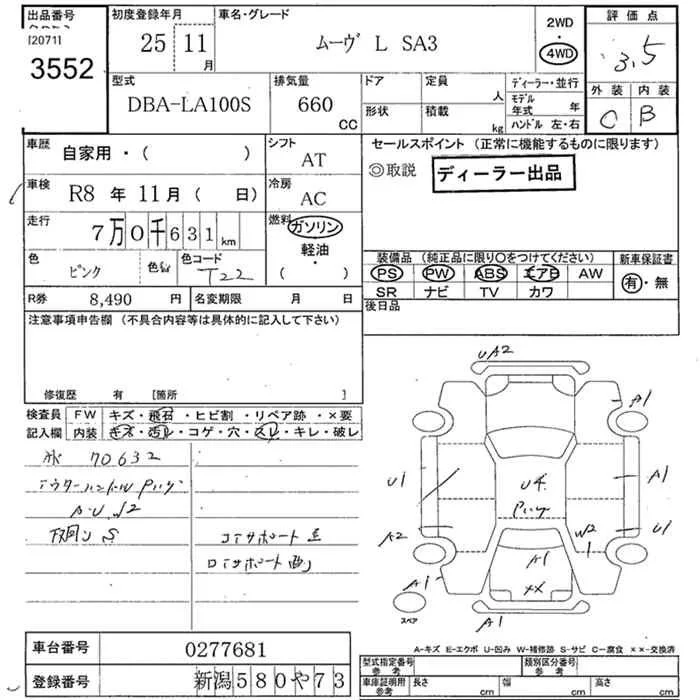 出品番号
[20711
3552
初度登録年月
25 11 月
車名・グレード
ムーヴ L SA3
2WD
・
4WD
評価点
3.5
外装 内装
C B
型式
DBA-LA100S
排気量
660 CC
ドア
形状
定員
人
積載
kg
ディーラー・並行
モデル年式 年
ハンドル 左・右
車歴
自家用・( )
シフト
AT
車検
R8 年 11 月 ( 日)
冷房
AC
走行
7万0千631 km
燃料
ガソリン
・
軽油
( )
色
ピンク
色替
色コード
T22
R券
8,490 円
名変期限 月 日
セールスポイント (正常に機能するものに限ります)
◎取説
ディーラー出品
装備品 (純正品に限り〇をつけてください)
PS PW ABS エアB AW
SR ナビ TV カワ
新車保証書
有・無
後日品
注意事項申告欄 (不具合内容等は具体的に記入して下さい)
修復歴 有 [箇所 ]
検査員
記入欄
FW キズ・飛石・ヒビ割・リペア跡・×要
内装 キズ・汚レ・コゲ・穴・スレ・キレ・破レ
70632
A・U W2
下回り S
UA2
A1
U1
A1
U4
A2
W2
U1
A1
A1
××
A1
スペア
A-キズ E-エクボ U-凹み W-補修跡 S-サビ C-腐食 ××-交換済
車台番号
0277681
登録番号
新潟580や73
型式指定番号
参考
類別区分番号
参考
車庫証明用
参考
長さ cm
幅 cm
高さ cm